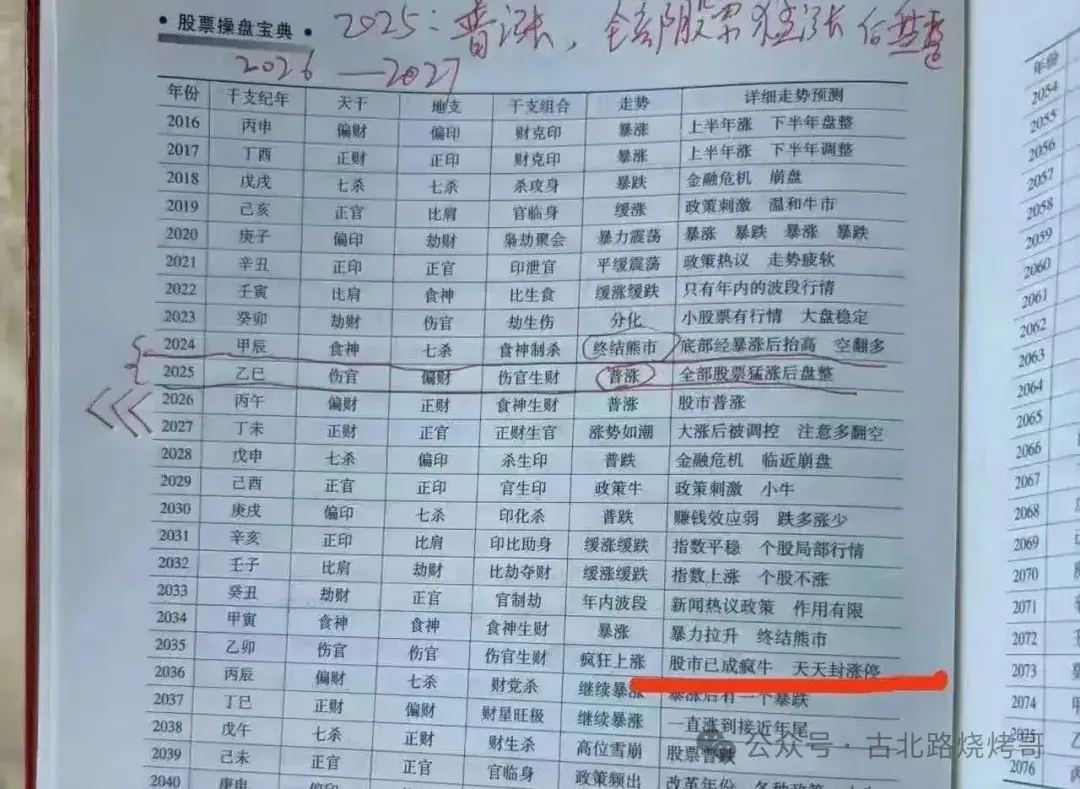 • 股票操盘宝典 •
2025：普涨，全部股票猛涨后盘整
2026—2027
年份 干支纪年 天干 地支 干支组合 走势 详细走势预测
2016 丙申 偏财 偏印 财克印 暴涨 上半年涨 下半年盘整
2017 丁酉 正财 正印 财克印 暴涨 上半年涨 下半年调整
2018 戊戌 七杀 七杀 杀攻身 暴跌 金融危机 崩盘
2019 己亥 正官 比肩 官临身 缓涨 政策刺激 温和牛市
2020 庚子 偏印 劫财 枭劫聚会 暴力震荡 暴涨 暴跌 暴涨 暴跌
2021 辛丑 正印 正官 印泄官 平缓震荡 政策热议 走势疲软
2022 壬寅 比肩 食神 比生食 缓涨缓跌 只有年内的波段行情
2023 癸卯 劫财 伤官 劫生伤 分化 小股票有行情 大盘稳定
2024 甲辰 食神 七杀 食神制杀 终结熊市 底部经暴涨后抬高 空翻多
2025 乙巳 伤官 偏财 伤官生财 普涨 全部股票猛涨后盘整
2026 丙午 偏财 正财 食神生财 普涨 股市普涨
2027 丁未 正财 正官 正财生官 涨势如潮 大涨后被调控 注意多翻空
2028 戊申 七杀 偏印 杀生印 普跌 金融危机 临近崩盘
2029 己酉 正官 正印 官生印 政策牛 政策刺激 小牛
2030 庚戌 偏印 七杀 印化杀 普跌 赚钱效应弱 跌多涨少
2031 辛亥 正印 比肩 印比助身 缓涨缓跌 指数平稳 个股局部行情
2032 壬子 比肩 劫财 比劫夺财 缓涨缓跌 指数上涨 个股不涨
2033 癸丑 劫财 正官 官制劫 年内波段 新闻热议政策 作用有限
2034 甲寅 食神 食神 食神生财 暴涨 暴力拉升 终结熊市
2035 乙卯 伤官 伤官 伤官生财 疯狂上涨 股市已成疯牛 天天封涨停
2036 丙辰 偏财 七杀 财党杀 继续暴涨 暴涨后有一个暴跌
2037 丁巳 正财 偏财 财星旺极 继续暴涨 一直涨到接近年尾
2038 戊午 七杀 正财 财生杀 高位雪崩 股票普跌
2039 己未 正官 正官 官临身 政策频出 改革年份
2040 庚申
年份
2054
2055
2056
2057
2058
2059
2060
2061
2062
2063
2064
2065
2066
2067
2068
2069
2070
2071
2072
2073
2074
2075
2076
公众号 · 古北路烧烤哥